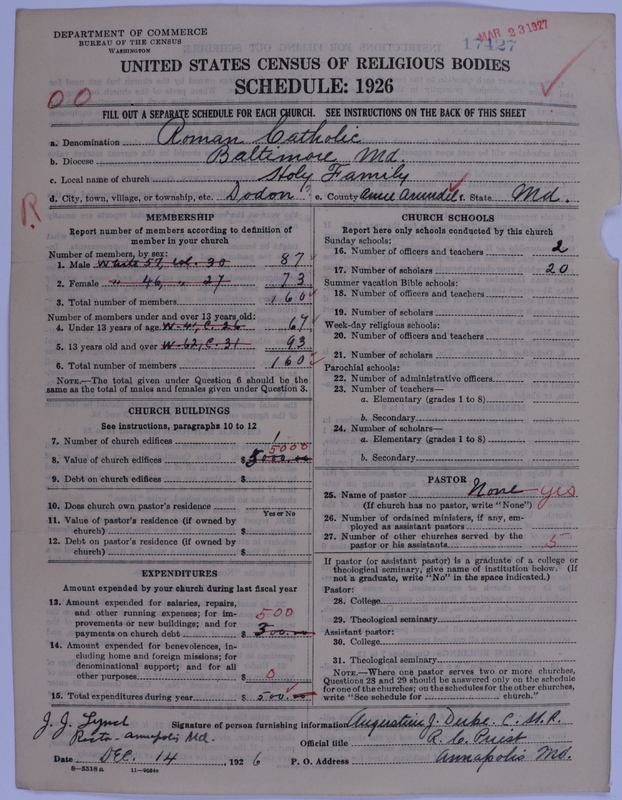 DEPARTMENT OF COMMERCE
BUREAU OF THE CENSUS
WASHINGTON
MAR 23 1927
17427
UNITED STATES CENSUS OF RELIGIOUS BODIES
SCHEDULE: 1926
00
FILL OUT A SEPARATE SCHEDULE FOR EACH CHURCH. SEE INSTRUCTIONS ON THE BACK OF THIS SHEET
a. Denomination Roman Catholic
b. Diocese Baltimore Md.
c. Local name of church Holy Family
d. City, town, village, or township, etc. Dodon e. County Anne Arundel f. State Md.
R
MEMBERSHIP
Report number of members according to definition of
member in your church
Number of members, by sex:
1. Male White 57, Col. 30 87
2. Female " 46, " 27 73
3. Total number of members 160
Number of members under and over 13 years old:
4. Under 13 years of age W-41, C. 26 67
5. 13 years old and over W-62, C. 31 93
6. Total number of members 160
NOTE.—The total given under Question 6 should be the
same as the total of males and females given under Question 3.
CHURCH BUILDINGS
See instructions, paragraphs 10 to 12
7. Number of church edifices 1
5000
8. Value of church edifices $ 5000.00
9. Debt on church edifices $
10. Does church own pastor's residence
Yes or No
11. Value of pastor's residence (if owned by
church) $
12. Debt on pastor's residence (if owned by
church) $
EXPENDITURES
Amount expended by your church during last fiscal year
13. Amount expended for salaries, repairs,
and other running expenses; for im-
provements or new buildings; and for
payments on church debt $ 500.00
500
14. Amount expended for benevolences, in-
cluding home and foreign missions; for
denominational support; and for all
other purposes $ 0
15. Total expenditures during year $ 500.00
CHURCH SCHOOLS
Report here only schools conducted by this church
Sunday schools:
16. Number of officers and teachers 2
17. Number of scholars 20
Summer vacation Bible schools:
18. Number of officers and teachers
19. Number of scholars
Week-day religious schools:
20. Number of officers and teachers
21. Number of scholars
Parochial schools:
22. Number of administrative officers
23. Number of teachers—
a. Elementary (grades 1 to 8)
b. Secondary
24. Number of scholars—
a. Elementary (grades 1 to 8)
b. Secondary
PASTOR
25. Name of pastor None yes
(If church has no pastor, write "None")
26. Number of ordained ministers, if any, em-
ployed as assistant pastors
27. Number of other churches served by the
pastor or his assistants 5
If pastor (or assistant pastor) is a graduate of a college or
theological seminary, give name of institution below. (If
not a graduate, write "No" in the space indicated.)
Pastor:
28. College
29. Theological seminary
Assistant pastor:
30. College
31. Theological seminary
NOTE.—Where one pastor serves two or more churches,
Questions 28 and 29 should be answered only on the schedule
for one of the churches; on the schedules for the other churches,
write "See schedule for church."
J. J. Lynch
Signature of person furnishing information Augustine J. Duke. C. SS. R.
Rector Annapolis Md.
Official title R. C. Priest
Date Dec. 14, 1926 P. O. Address Annapolis Md.
8—5318 a. 11—9684